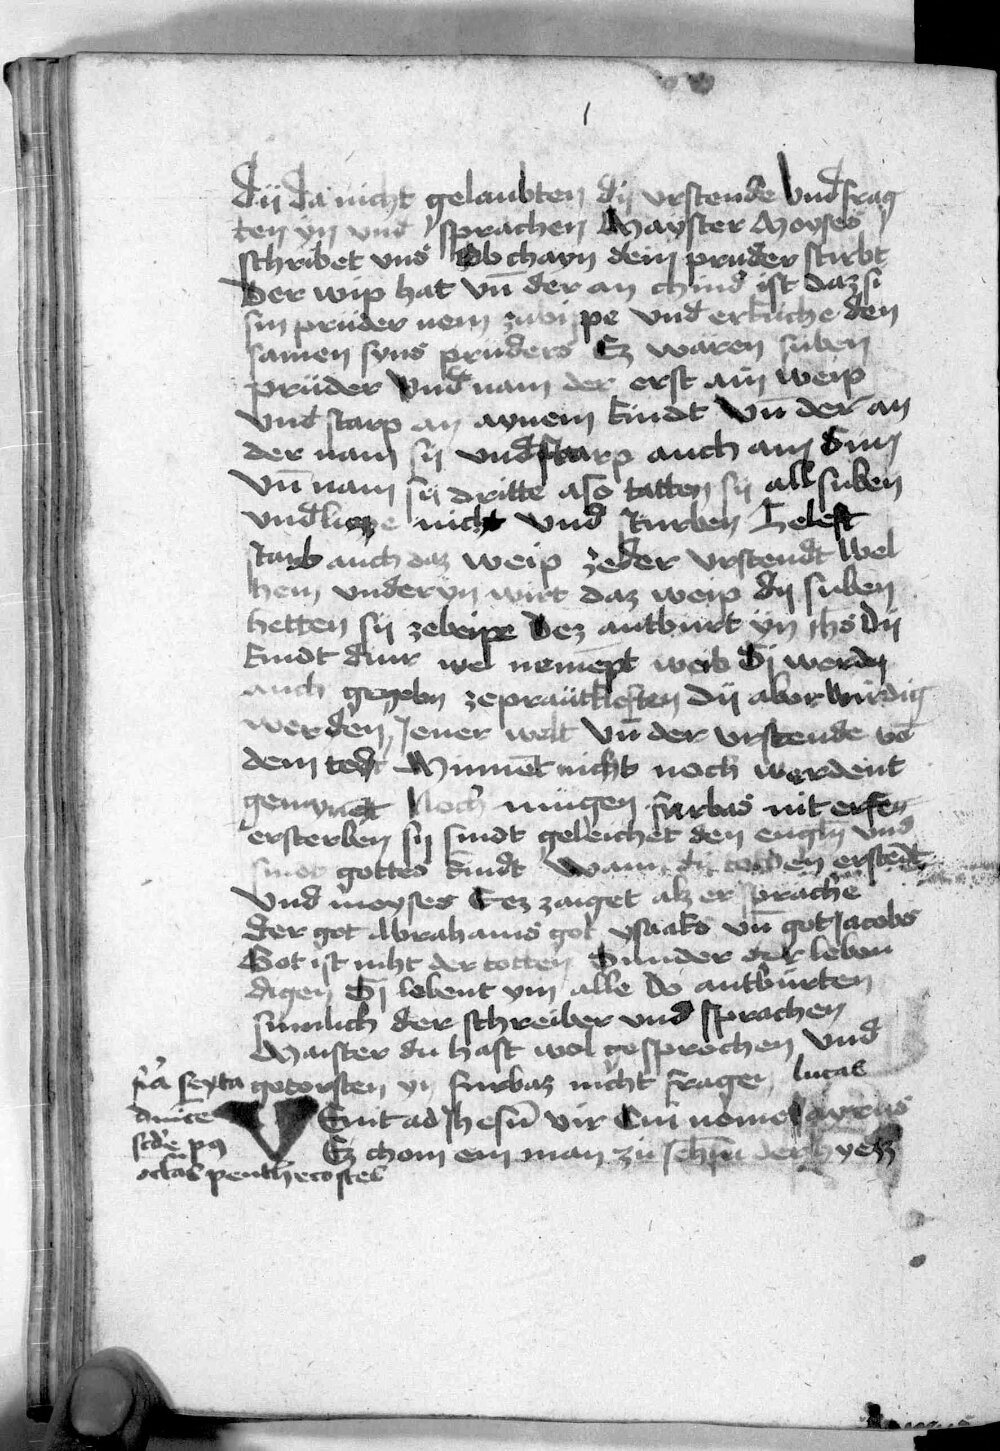 dÿ da nicht gelaubten dÿ vrstende vnd frag
ten yn vnd sprachen Mayster Moyses
schribet vns Ob chayn dein prüder stirbt
Der wip hat vn̄ der an chind ist daz si
sin prüder nem zwi pe vnd erküche den
samen syns prüders Ez waren siben
prüder vnd nam der erst ain weip
vnd starp an aynem kindt vn̄ der an
der nam sÿ vnd starp auch am Sun
vn̄ nam sÿ dritte also tatten sÿ all siben
vnd liezze nicht vnd sturben Zelest
starb auch daz weip ze der vrstendt wel
hem vnder yn wirt daz weip dÿ siben
hetten sÿ zebeipe Dez antburt yn ihs̄ Dÿ
kindt weib Si werdn
auch gegebn zeprautleften dÿ aber wirdig
werden Jener welt vn̄ der vrstende vō
dem tod nicht noch werdent
genomet Noch mügen fürbas nit
ersterben sÿ sindt geleichet den engln̄ vnd
sindt gottes kindt Wann erstēdt
vnd moyses Eez zaiget alz er sprache
der got Abrahams got ysaaks vn̄ got Jacobs
Got ist niht der totten Sunder der leben
digen Si lebent ym alle Do antbürten
sümlich der schreiber vnd sprachen
Maister du hast wol gesprochen vnd
getorsten yn furbaz nicht fragen lucas
fr̄a sexta
dn̄ice
scd̄e pꝰ
octas penthecostes
VEnit ad Jhesū vir Cui nomē Jayrus
Ez chom ein man zu Jehsū der hyezz